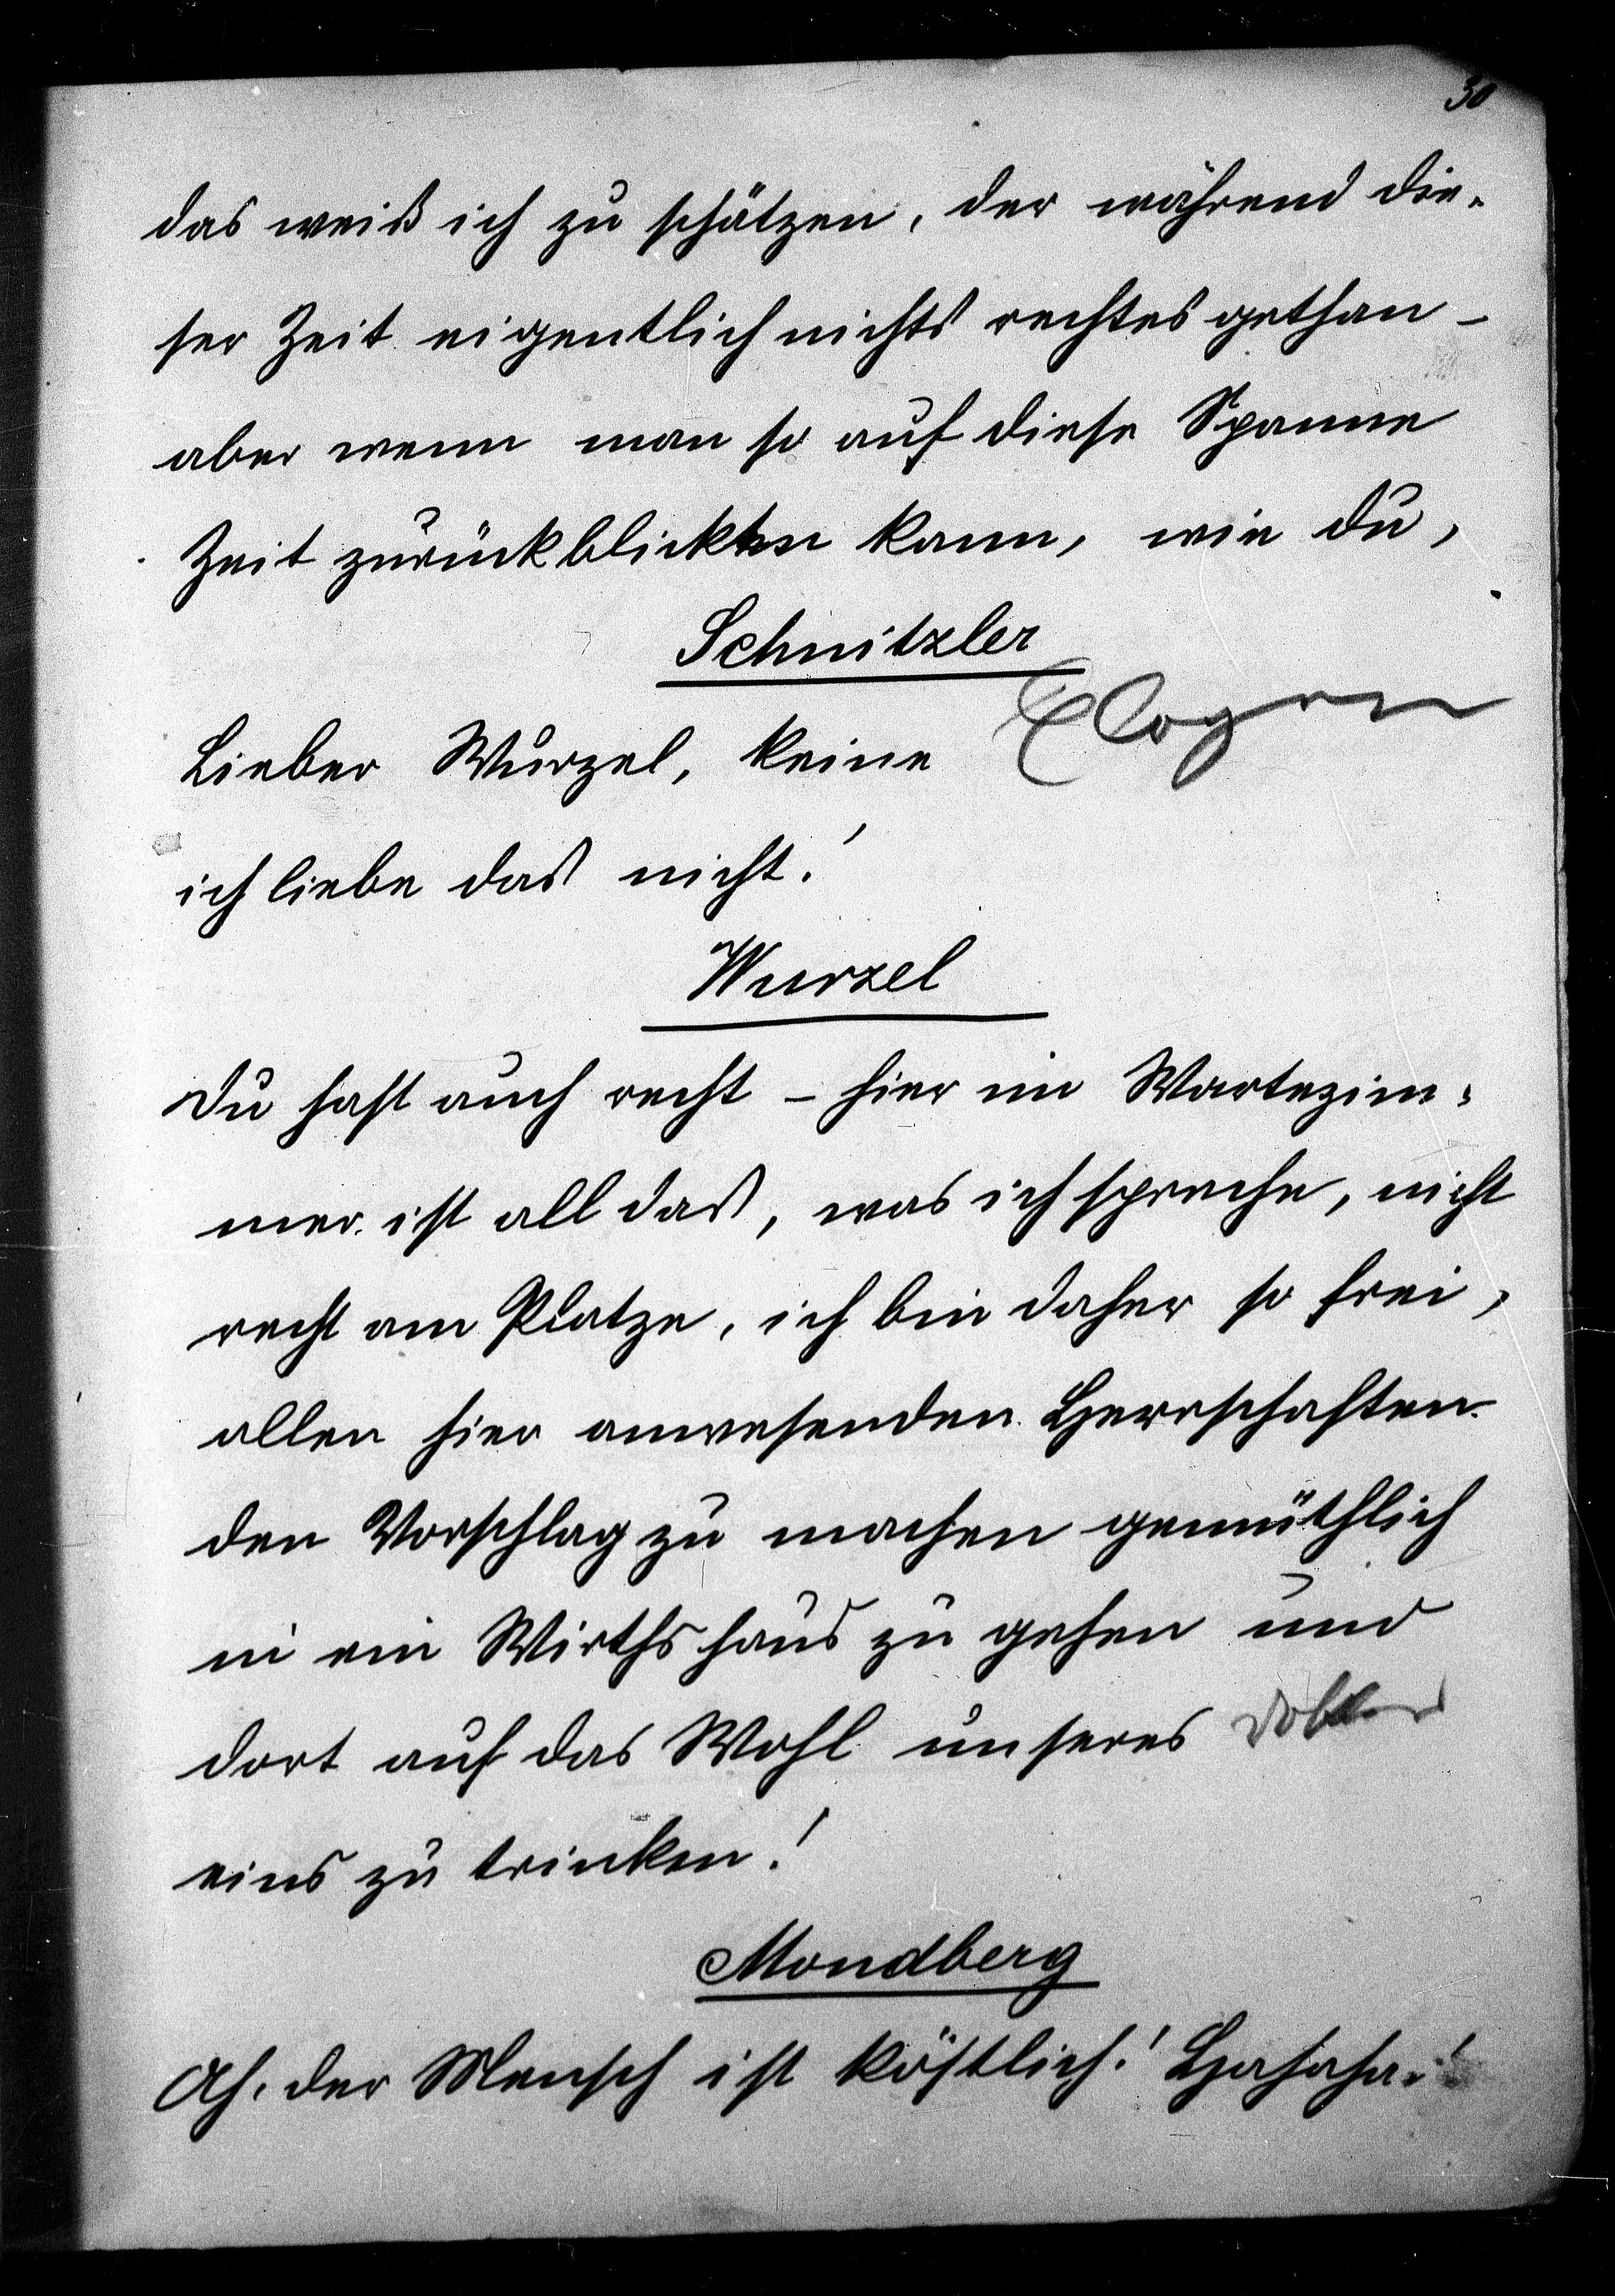 30
das weiß ich zu schätzen, der während die-
ser Zeit eigentlich nichts rechtes gethan –
aber wenn man so auf diese Spanne
Zeit zurückblicken kann, wie du,
Schnitzler
Lieber Wurzel, keine Elogen
ich liebe das nicht!
Wurzel
Du hast auch recht – hier im Wartezim-
mer ist all das, was ich spreche, nicht
recht am Platze, ich bin daher so frei,
allen hier anwesenden Herrschaften
den Vorschlag zu machen gemüthlich
in ein Wirthshaus zu gehen und
dort auf das Wohl unseres
eins zu trinken!
Mondberg
Ah, der Mensch ist köstlich! Hahaha!